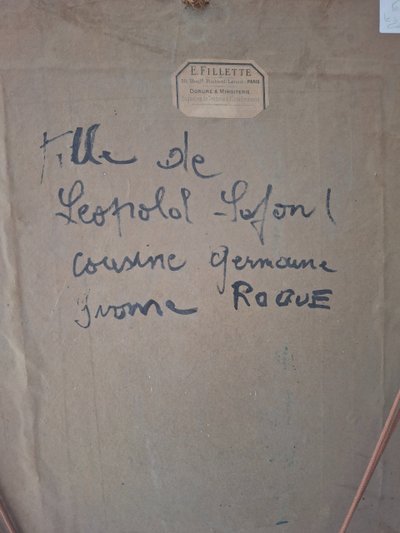 E. FILLETTE
PARIS
DORURE & MIROITERIE
Fille de
Leopold Lafont
cousine germaine
Yvonne ROQUE